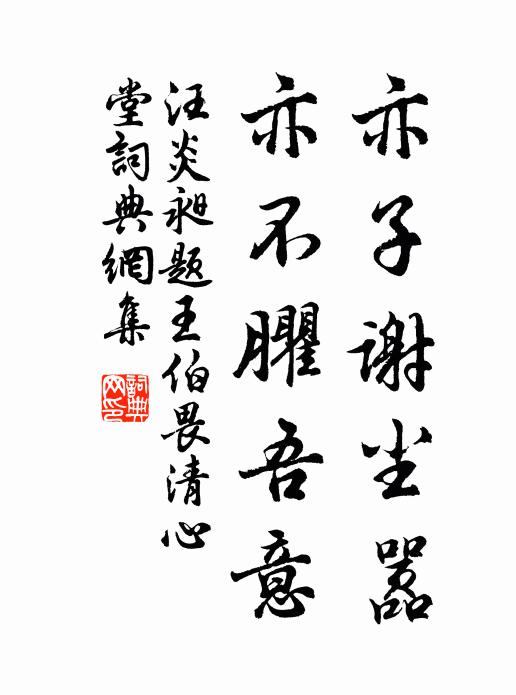 亦子谢尘嚣
亦不臞吾意
汪炎昶题王伯畏清心
堂詞典網集
詞典网印